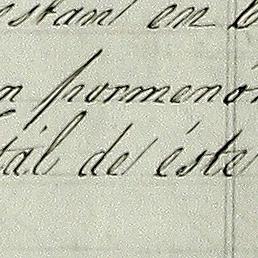 estan en
n pormenór
tál de éste